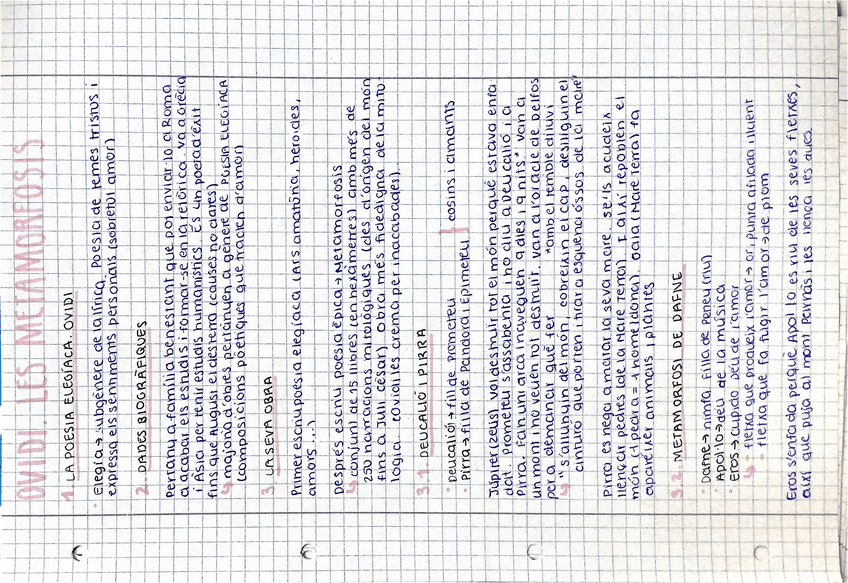 OVIDI. LES METAMORFOSIS
1. LA POESIA ELEGÍACA. OVIDI
· Elegia → subgènere de la lírica. Poesia de temes tristos i
expressa els sentiments personals (sobretot amor)
2. DADES BIOGRÀFIQUES
Pertany a família benestant que pot enviar-lo a Roma
a acabar els estudis i formar-se en la retòrica. va a Grècia
i Àsia per tenir estudis humanístics. És un poeta d'èxit
fins que August el desterra (causes no clares)
↳ majoria d'obres pertanyen a gènere de POESIA ELEGÍACA
(composicions poètiques que tracten d'amor)
3. LA SEVA OBRA
Primer escriu poesia elegíaca (Ars amatòria, heroides,
amors ...)
Després escriu poesia èpica → Metamorfosis
↳ conjunt de 15 llibres (en hexàmetres) amb més de
250 narracions mitològiques (des d'origen del món
fins a Juli Cèsar). Obra més fidedigna de la mito-
logia. (Ovidi les crema per inacabades).
3.1. DEUCALIÓ I PIRRA
· Deucalió → fill de Prometeu
· Pirra → filla de Pandora i Epimeteu } cosins i amants
Júpiter (Zeus) vol destruir tot el món perquè estava enfa-
dat. Prometeu s'assabenta i ho diu a Deucalió i a
Pirra. Fan una arca i naveguen 9 dies i 9 nits* van a
un mont i ho veuen tot destruït. van a l'oracle de Delfos
per a demanar què fer *amb el temible diluvi
↳ "s'allunyin del món, cobreixin el cap, deslliguin el
cinturó que porten i tirar a esquena óssos de la mare"
Pirra es nega a matar la seva mare. Se'ls acudeix
llençar pedres (de la Mare Terra). I així repoblen el
món (1 pedra = 1 home/dona). Gaia (Mare Terra) fa
aparèixer animals i plantes
3.2. METAMORFOSI DE DAFNE
· Dafne → nimfa filla de Peneu (riu)
· Apol·lo → déu de la música
· Eros → Cupido Déu de l'amor
↳ · fletxa que produeix l'amor → or, punta afilada i lluent
· fletxa que fa fugir l'amor → de plom
Eros s'enfada perquè Apol·lo es riu de les seves fletxes,
així que puja al mont Parnàs i les llença les dues.